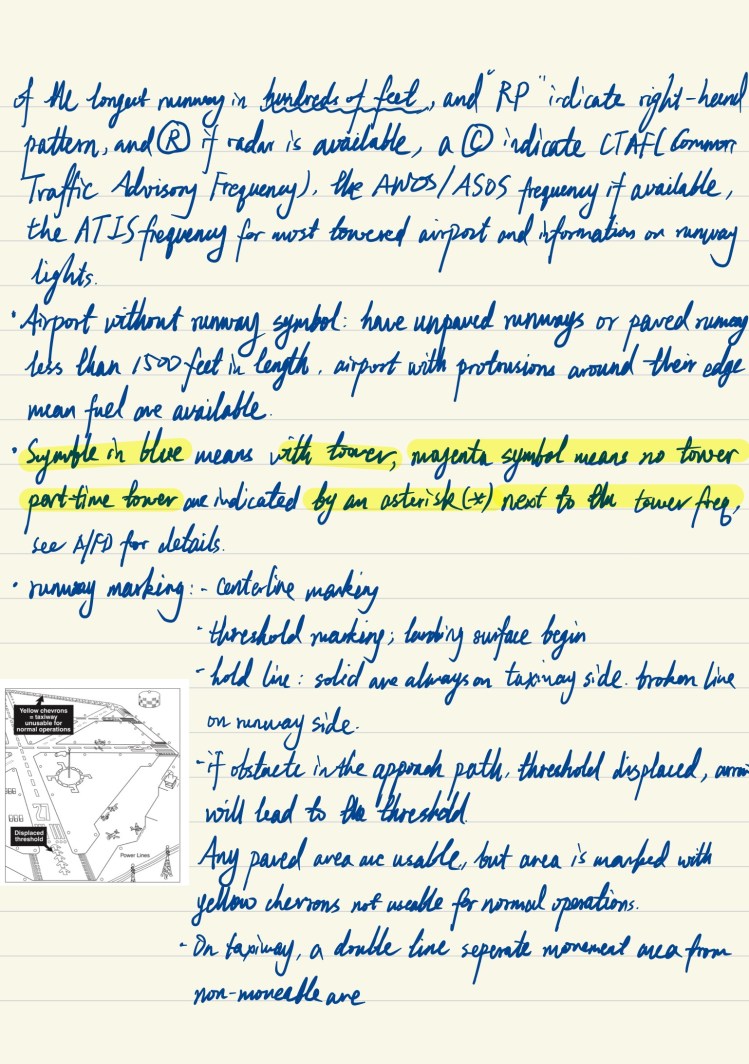 of the longest runway in hundreds of feet, and "RP" indicate right-hand
pattern, and Ⓡ if radar is available, a Ⓒ indicate CTAF( Common
Traffic Advisory Frequency), the AWOS/ASOS frequency if available,
the ATIS frequency for most towered airport and information on runway
lights.
· Airport without runway symbol: have unpaved runways or paved runway
less than 1500 feet in length. airport with protrusions around their edge
mean fuel are available.
· Symble in blue means with tower, magenta symbol means no tower
part-time tower are indicated by an asterisk(*) next to the tower freq,
see A/FD for details.
· runway marking: - centerline marking
- threshold marking; landing surface begin
- hold line: solid are always on taxiway side. broken line
on runway side.
- if obstacte in the approach path, threshold displaced, arrow
will lead to the threshold.
Any paved area are usable, but area is marked with
yellow chevrons not useable for normal operations.
- On taxiway, a double line seperate movement area from
non-moveable are
Yellow chevrons
= taxiway
unusable for
normal operations
Displaced
threshold
Power Lines